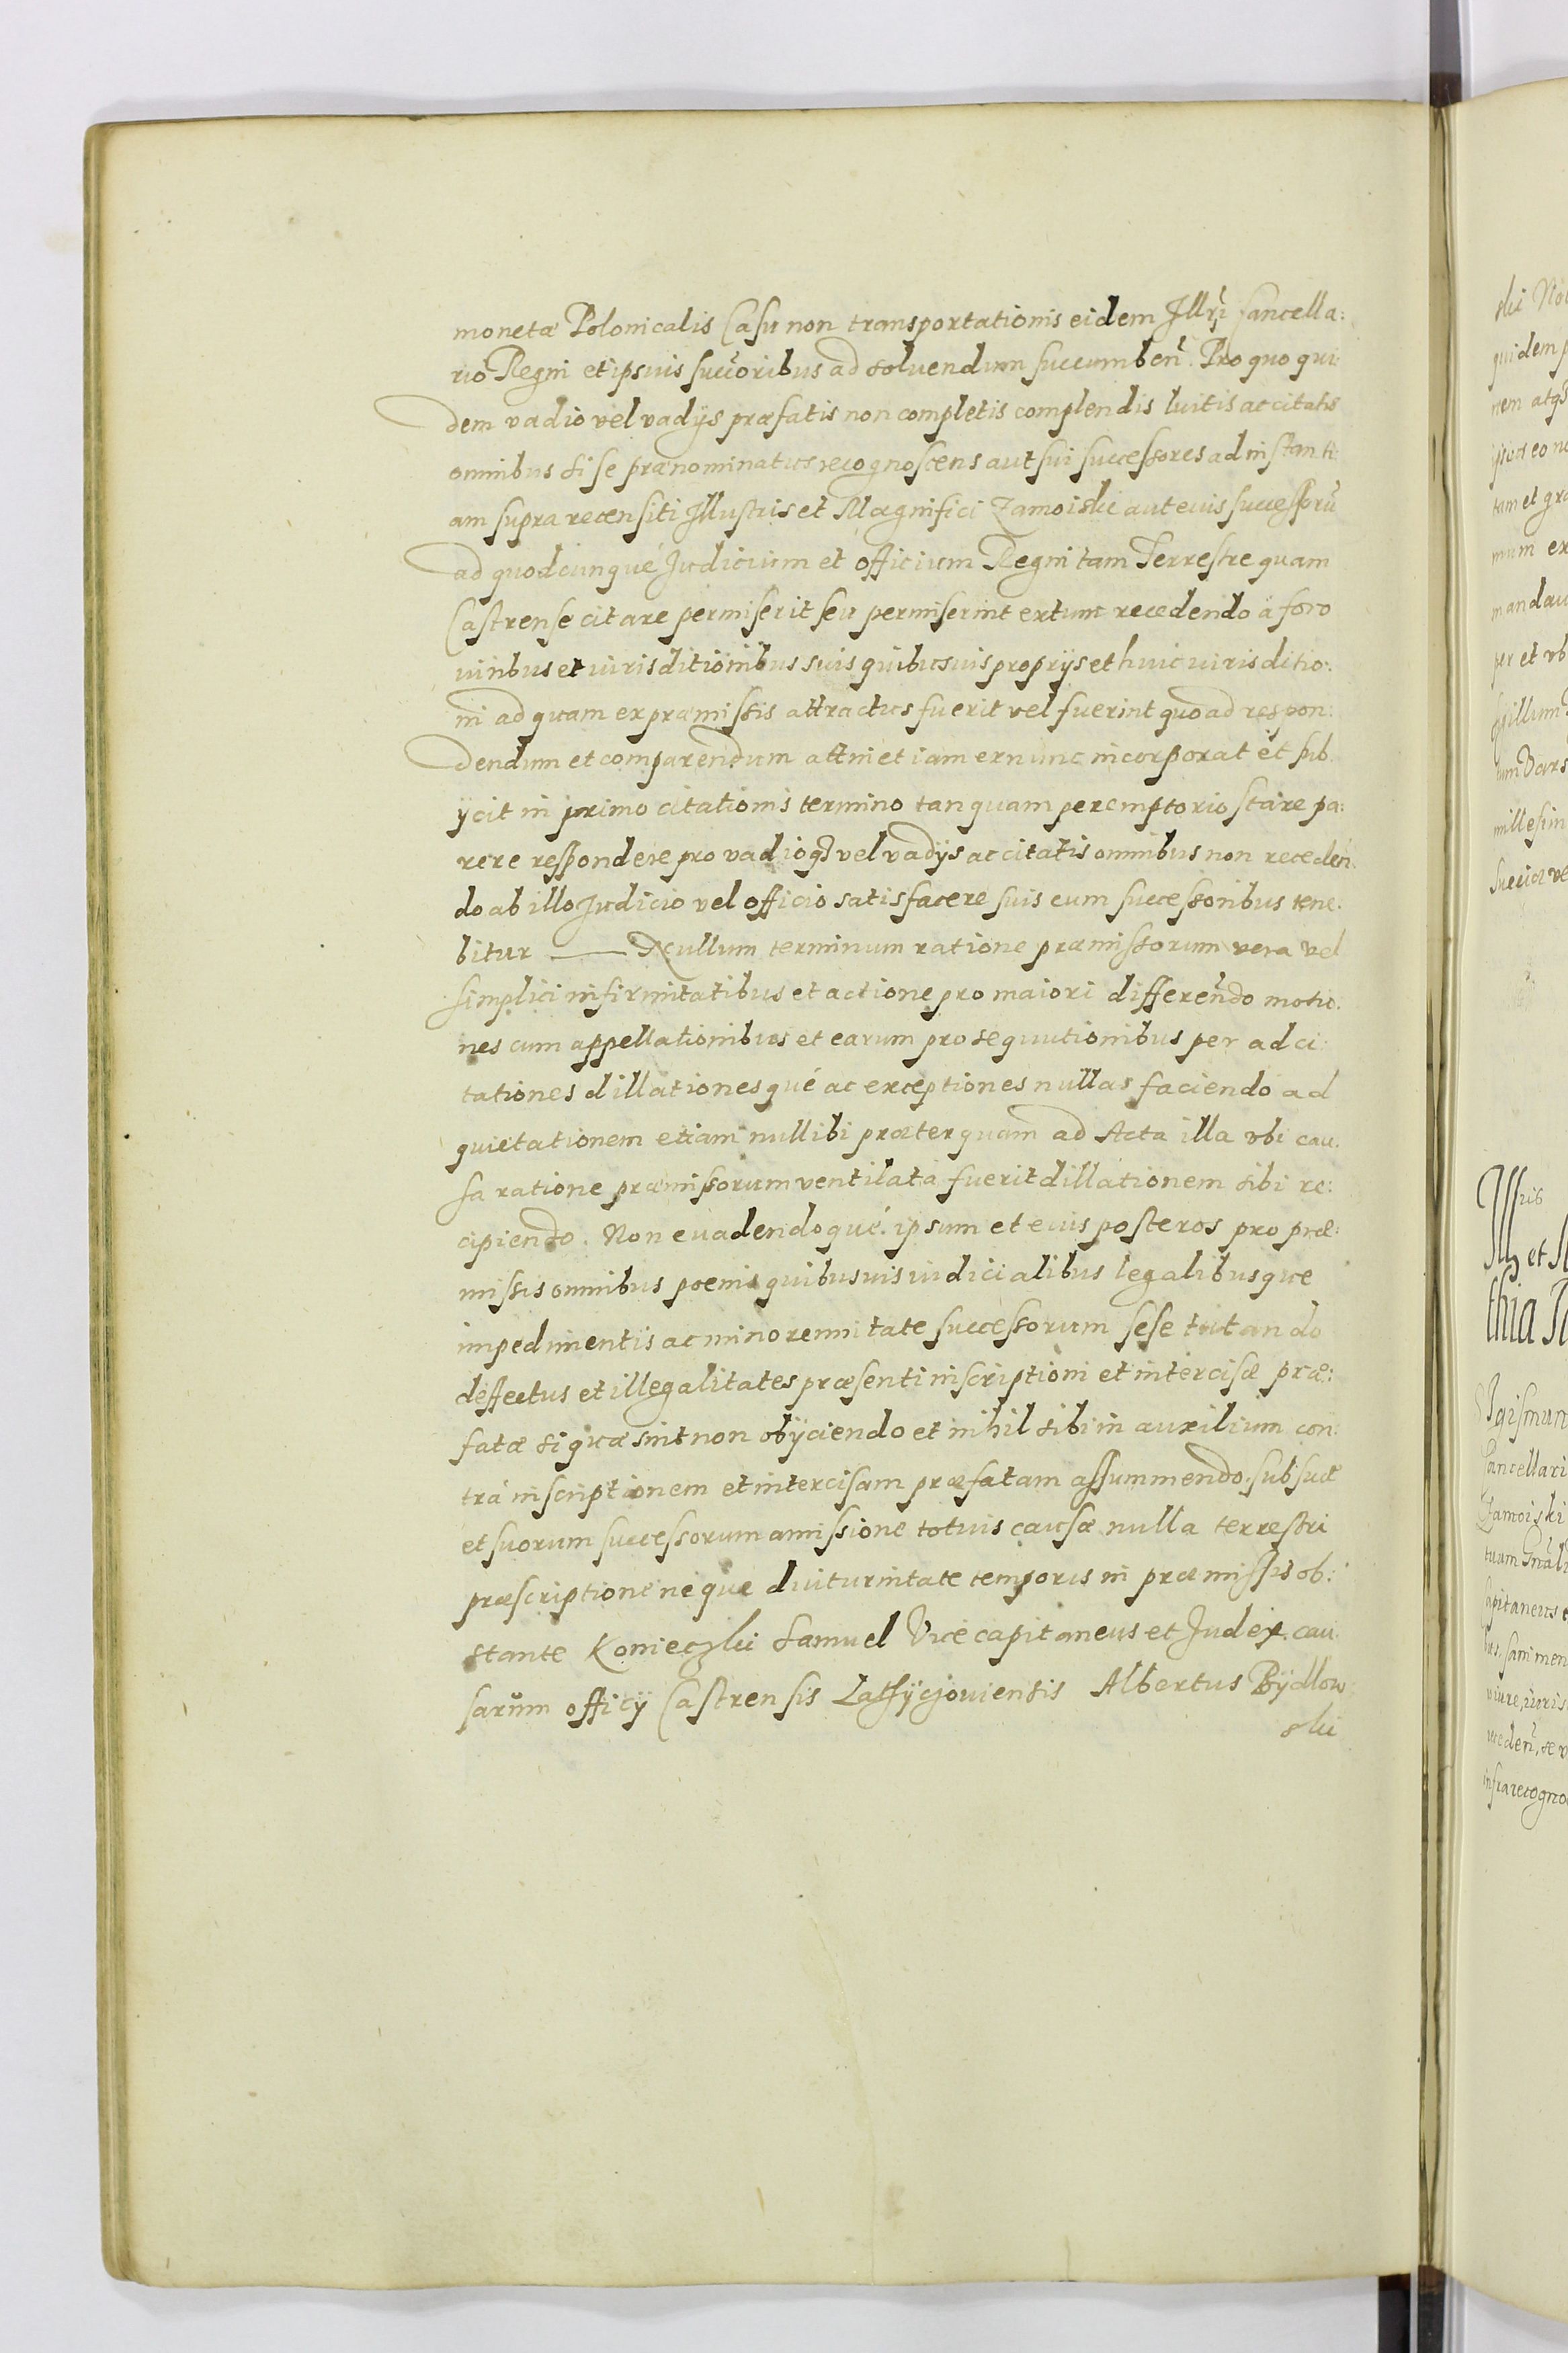 monetæ Polonicalis Casu non transportationis eidem Illrĩ Cancella:
rio Regni et ipsius succ̃oribus ad soluendum succumbeñ. Pro quo qui
dem vadio vel vadijs præfatis non completis complendis luitis ac citatis
omnibus si se prænominatus recognoscens aut sui successores ad instanti:
am supra recensiti Illustris et Magnifici Zamoiski aut eius successorũ
ad quodcunque Judicium et officium Regni tam Terrestre quam
Castrense citare permiserit seu permiserint extunc recedendo à foro
iuribus et iurisditionibus suis quibusuis proprijs et huic iurisditio:
ni ad quam ex præmissis attractus fuerit vel fuerint quo ad respon:
dendum et comparendum attinet iam exnunc incorporat et sub
ijcit in primo citationis termino tanquam peremptorio stare pa:
rere respondere pro vadioq3 vel vadijs ac citatis omnibus non receden
do ab illo Judicio vel officio satisfacere suis cum successoribus tene:
bitur —— Nullum terminum ratione præmissorum vera vel
simplici infirmitatibus et actione pro maiori differendo motio:
nes cum appellationibus et earum prosequutionibus per ad ci:
tationes dillationesqué ac exceptiones nullas faciendo ad
quietationem etiam nullibi præterquam ad Acta illa vbi cau
sa ratione præmissorum ventilata fuerit dillationem sibi re:
cipiendo. Non euadendoqué ipsum et eius posteros pro præ:
missis omnibus poenis quibusuis iudicialibus legalibusque
impedimentis ac minorennitate successorum sese tutando
deffectus et illegalitates præsenti inscriptioni et intercisæ præ:
fatæ si quæ sint non obijciendo et nihil sibi in auxilium con:
tra inscriptionem et intercisam præfatam assummendo, sub suæ
et suorum successorum amissione totius causæ nulla terrestri
præscriptione neque diuturnitate temporis in præmissis ob:
stante Konieczki Samuel Vice capitaneus et Judex cau
sarum officij Castrensis Latÿcjouiensis Albertus Bÿdlow
ski